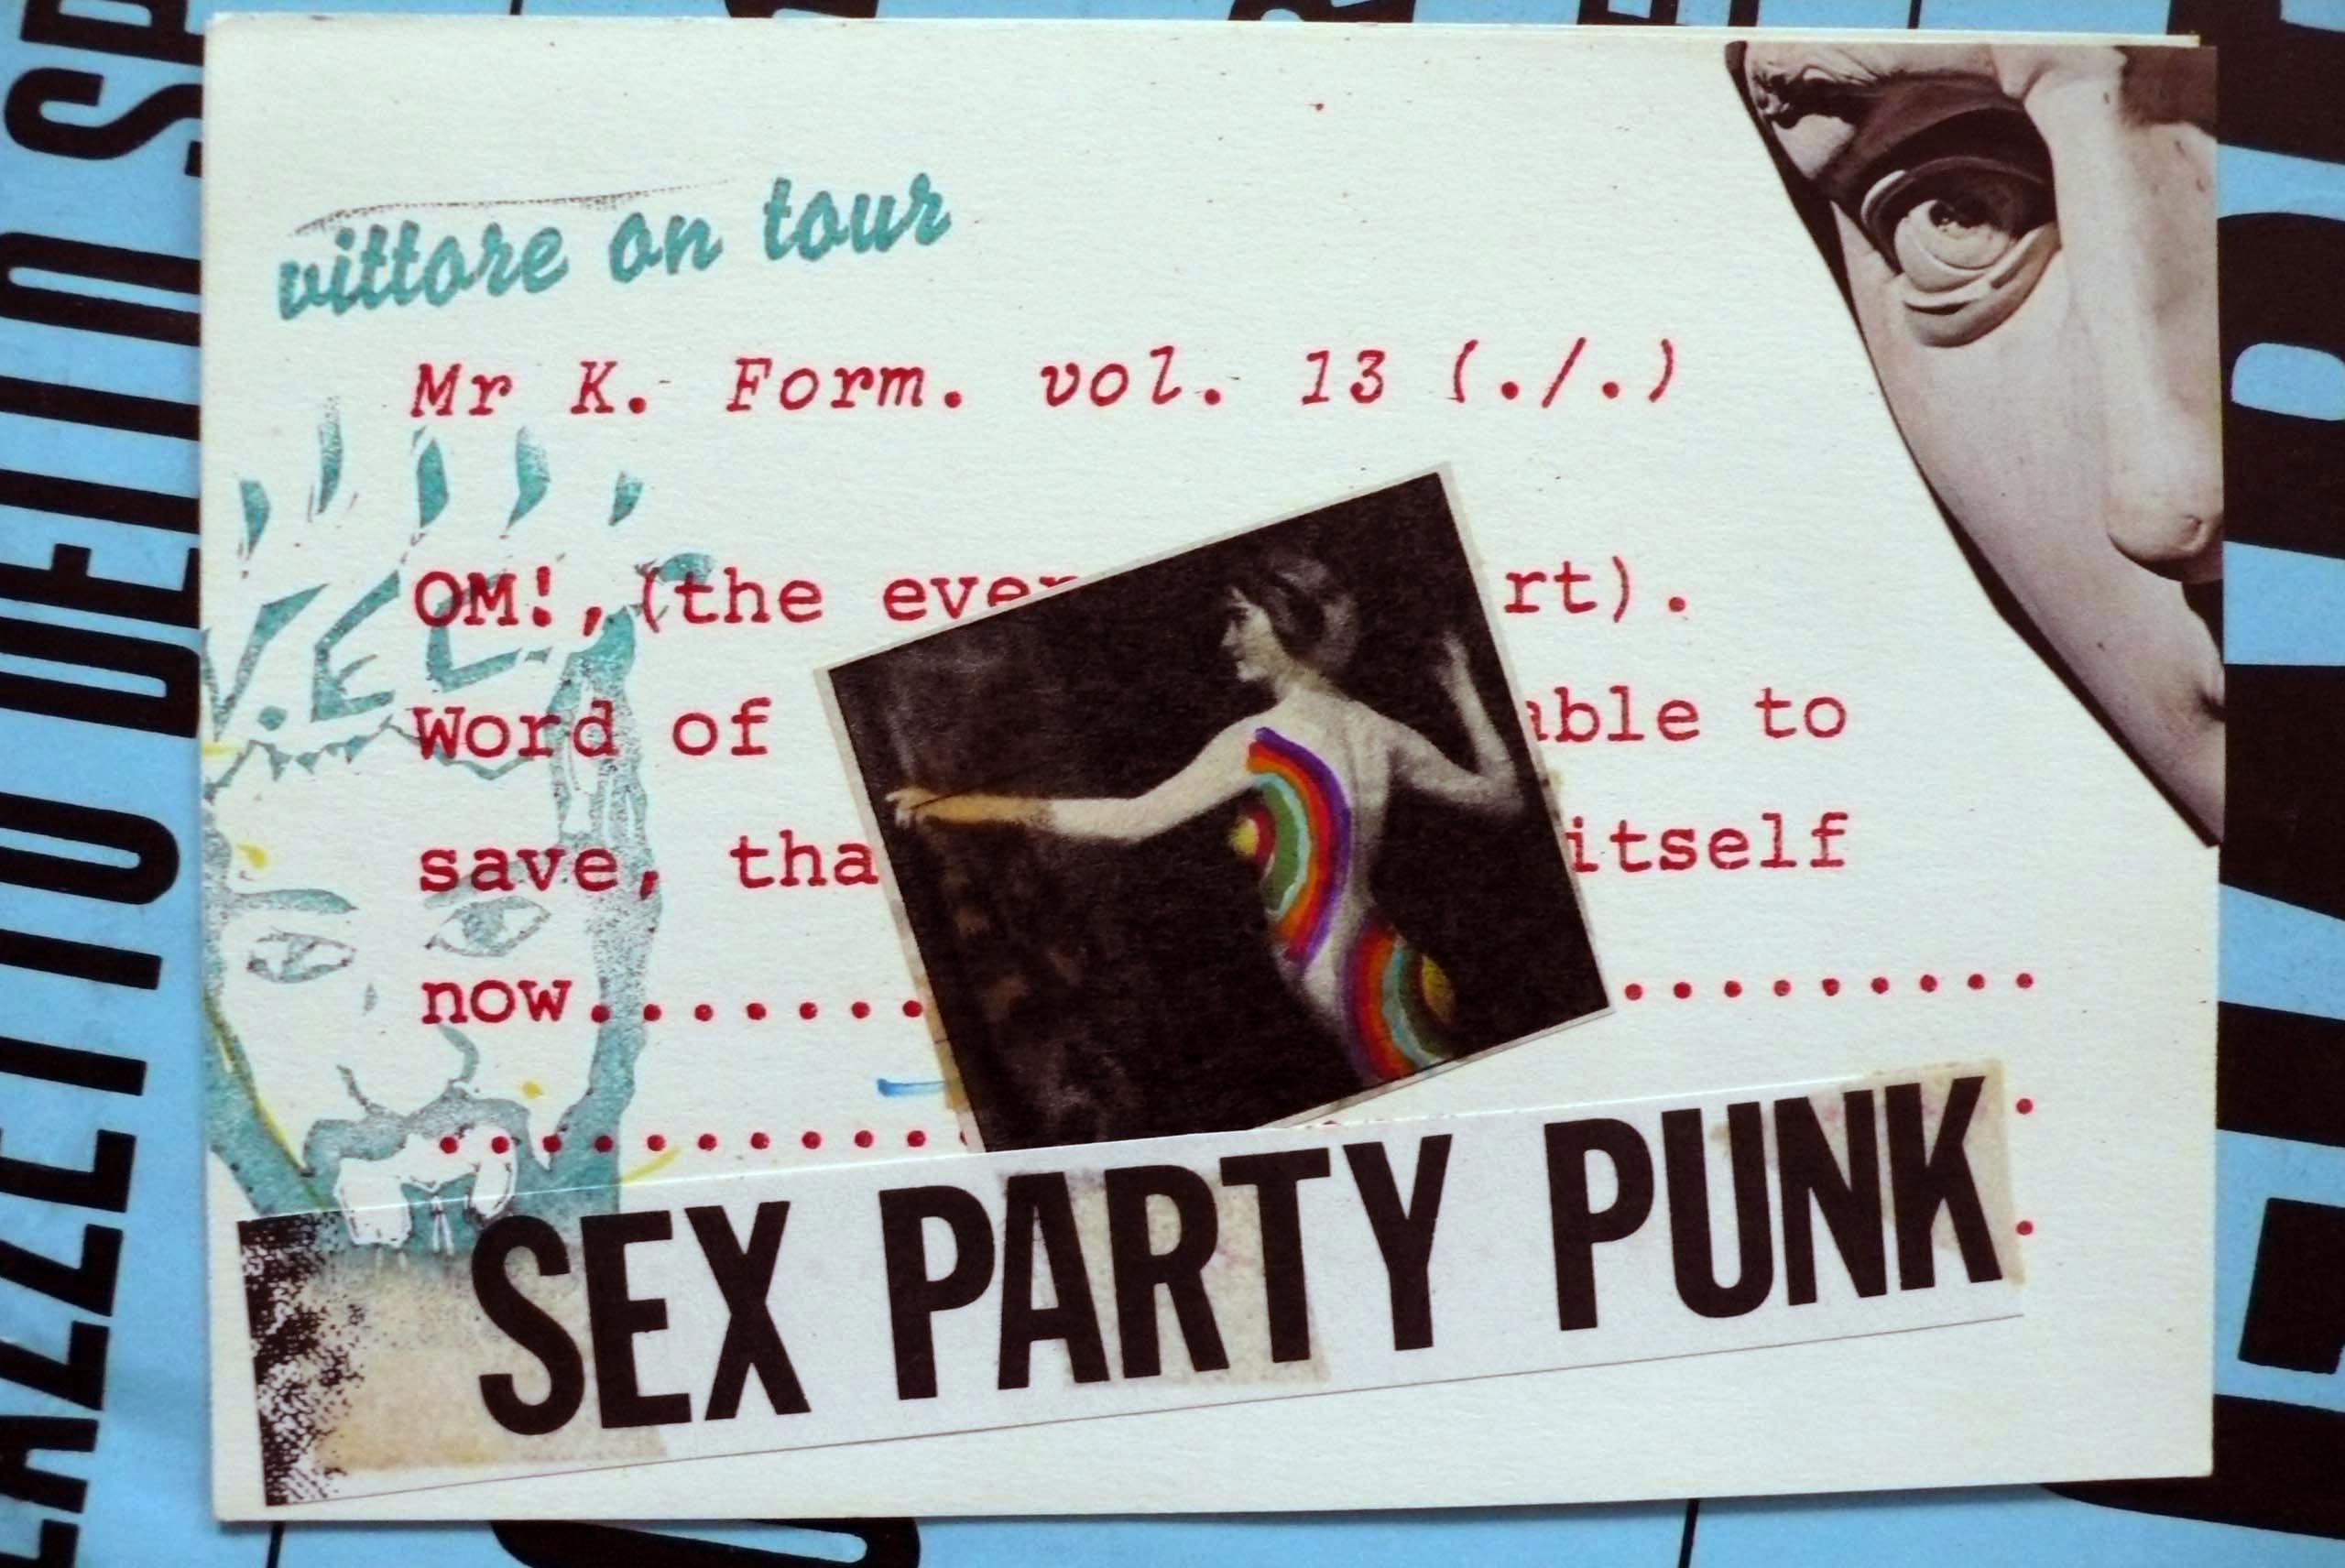 vittore on tour
Mr K. Form. vol. 13 (./.)
OM!, (the ever rt).
V.EC
Word of able to
save, tha itself
now....... .........
...........
SEX PARTY PUNK